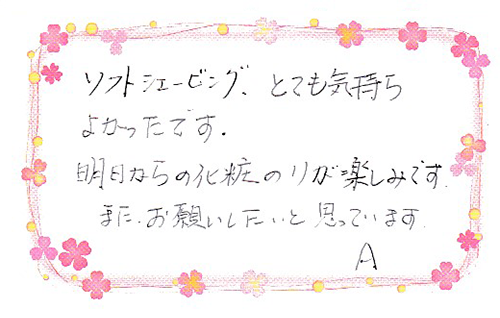 ソフトシェービング、とても気持ち
よかったです.
明日からの化粧のりが楽しみです.
また、お願いしたいと思っています.
A